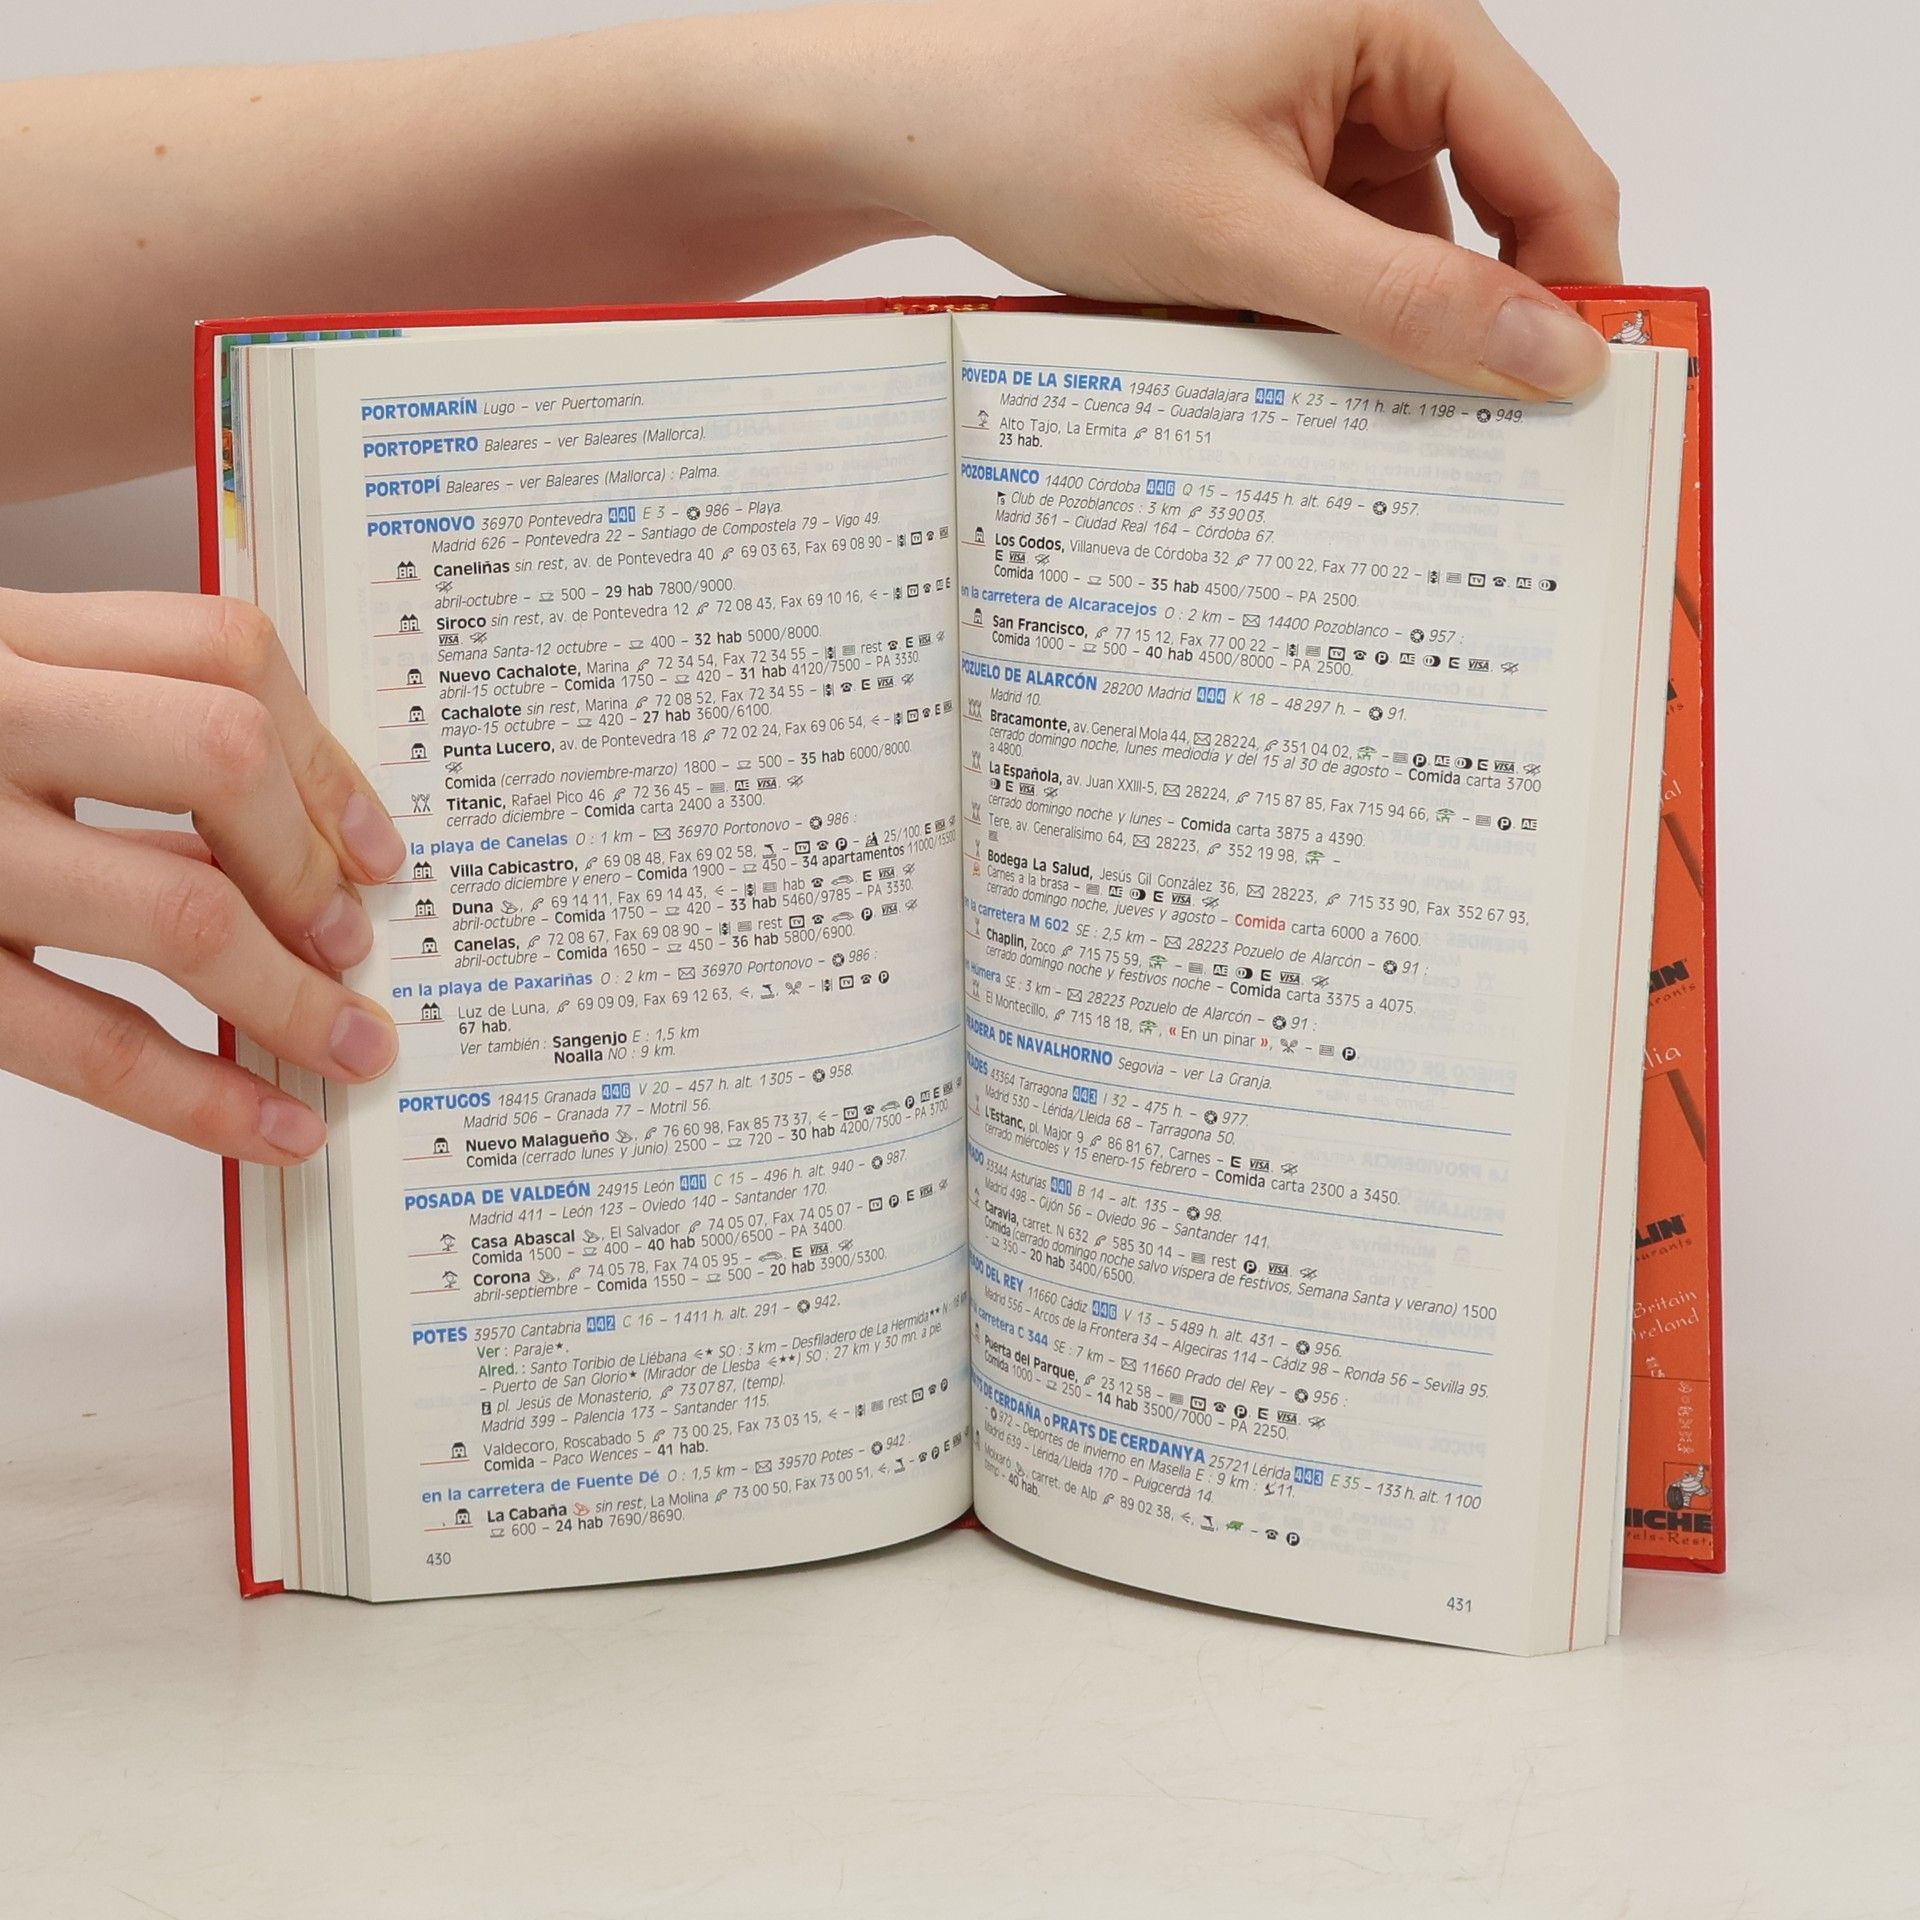 PORTOMARÍN Lugo – ver Puertomarín.
PORTOPETRO Baleares – ver Baleares (Mallorca).
PORTOPÍ Baleares – ver Baleares (Mallorca) : Palma.
PORTONOVO 36970 Pontevedra 441 E 3 – 986 – Playa.
Madrid 626 – Pontevedra 22 – Santiago de Compostela 79 – Vigo 49.
Caneliñas sin rest, av. de Pontevedra 40 69 03 63, Fax 69 08 90 – TV
VISA
abril-octubre – 500 – 29 hab 7800/9000.
Siroco sin rest, av. de Pontevedra 12 72 08 43, Fax 69 10 16, – TV AE E
VISA
Semana Santa-12 octubre – 400 – 32 hab 5000/8000.
Nuevo Cachalote, Marina 72 34 54, Fax 72 34 55 – rest E VISA
abril-15 octubre – Comida 1750 – 420 – 31 hab 4120/7500 – PA 3330.
Cachalote sin rest, Marina 72 08 52, Fax 72 34 55 – E VISA
mayo-15 octubre – 420 – 27 hab 3600/6100.
Punta Lucero, av. de Pontevedra 18 72 02 24, Fax 69 06 54, – TV E VISA
Comida (cerrado noviembre-marzo) 1800 – 500 – 35 hab 6000/8000.
Titanic, Rafael Pico 46 72 36 45 – AE VISA
cerrado diciembre – Comida carta 2400 a 3300.
la playa de Canelas O : 1 km – 36970 Portonovo – 986 :
Villa Cabicastro, 69 08 48, Fax 69 02 58, – TV P – 25/100. E VISA
cerrado diciembre y enero – Comida 1900 – 450 – 34 apartamentos 11000/15500
Duna, 69 14 11, Fax 69 14 43, – hab E VISA
abril-octubre – Comida 1750 – 420 – 33 hab 5460/9785 – PA 3330.
Canelas, 72 08 67, Fax 69 08 90 – rest TV P VISA
abril-octubre – Comida 1650 – 450 – 36 hab 5800/6900.
en la playa de Paxariñas O : 2 km – 36970 Portonovo – 986 :
Luz de Luna, 69 09 09, Fax 69 12 63, – TV P
67 hab.
Ver también : Sangenjo E : 1,5 km
Noalla NO : 9 km.
PORTUGOS 18415 Granada 446 V 20 – 457 h. alt. 1 305 – 958.
Madrid 506 – Granada 77 – Motril 56.
Nuevo Malagueño, 76 60 98, Fax 85 73 37, – TV P AE E VISA
Comida (cerrado lunes y junio) 2500 – 720 – 30 hab 4200/7500 – PA 3700.
POSADA DE VALDEÓN 24915 León 441 C 15 – 496 h. alt. 940 – 987.
Madrid 411 – León 123 – Oviedo 140 – Santander 170.
Casa Abascal, El Salvador 74 05 07, Fax 74 05 07 – TV P E VISA
Comida 1500 – 400 – 40 hab 5000/6500 – PA 3400.
Corona, 74 05 78, Fax 74 05 95 – E VISA
abril-septiembre – Comida 1550 – 500 – 20 hab 3900/5300.
POTES 39570 Cantabria 442 C 16 – 1 411 h. alt. 291 – 942.
Ver : Paraje★.
Alred. : Santo Toribio de Liébana ★ SO : 3 km – Desfiladero de La Hermida★★ N : 18 km
– Puerto de San Glorio★ (Mirador de Llesba ★★) SO : 27 km y 30 mn. à pie.
pl. Jesús de Monasterio, 73 07 87, (temp).
Madrid 399 – Palencia 173 – Santander 115.
Valdecoro, Roscabado 5 73 00 25, Fax 73 03 15, – rest TV P
Comida – Paco Wences – 41 hab.
en la carretera de Fuente Dé O : 1,5 km – 39570 Potes – 942 :
La Cabaña sin rest, La Molina 73 00 50, Fax 73 00 51, – P E VISA
600 – 24 hab 7690/8690.
430
POVEDA DE LA SIERRA 19463 Guadalajara 444 K 23 – 171 h. alt. 1 198 – 949.
Madrid 234 – Cuenca 94 – Guadalajara 175 – Teruel 140.
Alto Tajo, La Ermita 81 61 51
23 hab.
POZOBLANCO 14400 Córdoba 446 Q 15 – 15 445 h. alt. 649 – 957.
Club de Pozoblancos : 3 km 33 90 03.
Madrid 361 – Ciudad Real 164 – Córdoba 67.
Los Godos, Villanueva de Córdoba 32 77 00 22, Fax 77 00 22 – TV AE
E VISA
Comida 1000 – 500 – 35 hab 4500/7500 – PA 2500.
en la carretera de Alcaracejos O : 2 km – 14400 Pozoblanco – 957 :
San Francisco, 77 15 12, Fax 77 00 22 – TV P AE E VISA
Comida 1000 – 500 – 40 hab 4500/8000 – PA 2500.
POZUELO DE ALARCÓN 28200 Madrid 444 K 18 – 48 297 h. – 91.
Madrid 10.
Bracamonte, av. General Mola 44, 28224, 351 04 02, – P AE E VISA
cerrado domingo noche, lunes mediodía y del 15 al 30 de agosto – Comida carta 3700
a 4800.
La Española, av. Juan XXIII-5, 28224, 715 87 85, Fax 715 94 66, – P AE
E VISA
cerrado domingo noche y lunes – Comida carta 3875 a 4390.
Tere, av. Generalísimo 64, 28223, 352 19 98, –
Bodega La Salud, Jesús Gil González 36, 28223, 715 33 90, Fax 352 67 93,
Carnes a la brasa – AE E VISA
cerrado domingo noche, jueves y agosto – Comida carta 6000 a 7600.
carretera M 602 SE : 2,5 km – 28223 Pozuelo de Alarcón – 91 :
Chaplin, Zoco 715 75 59, – AE E VISA
cerrado domingo noche y festivos noche – Comida carta 3375 a 4075.
Húmera SE : 3 km – 28223 Pozuelo de Alarcón – 91 :
El Montecillo, 715 18 18, « En un pinar », – P
DE NAVALHORNO Segovia – ver La Granja.
43364 Tarragona 443 I 32 – 475 h. – 977.
Madrid 530 – Lérida/Lleida 68 – Tarragona 50.
L'Estanc, pl. Major 9 86 81 67, Carnes – E VISA
cerrado miércoles y 15 enero-15 febrero – Comida carta 2300 a 3450.
33344 Asturias 441 B 14 – alt. 135 – 98.
Madrid 498 – Gijón 56 – Oviedo 96 – Santander 141.
Caravia, carret. N 632 585 30 14 – rest P VISA
Comida (cerrado domingo noche salvo víspera de festivos, Semana Santa y verano) 1500
– 350 – 20 hab 3400/6500.
DEL REY 11660 Cádiz 446 V 13 – 5 489 h. alt. 431 – 956.
Madrid 556 – Arcos de la Frontera 34 – Algeciras 114 – Cádiz 98 – Ronda 56 – Sevilla 95.
carretera C 344 SE : 7 km – 11660 Prado del Rey – 956 :
Puerta del Parque, 23 12 58 – TV P E VISA
Comida 1000 – 250 – 14 hab 3500/7000 – PA 2250.
DE CERDAÑA o PRATS DE CERDANYA 25721 Lérida 443 E 35 – 133 h. alt. 1 100
– 972 – Deportes de invierno en Masella E : 9 km : 11.
Madrid 639 – Lérida/Lleida 170 – Puigcerdà 14.
Moixaró, carret. de Alp 89 02 38, – P
temp – 40 hab.
431
Britain
Ireland